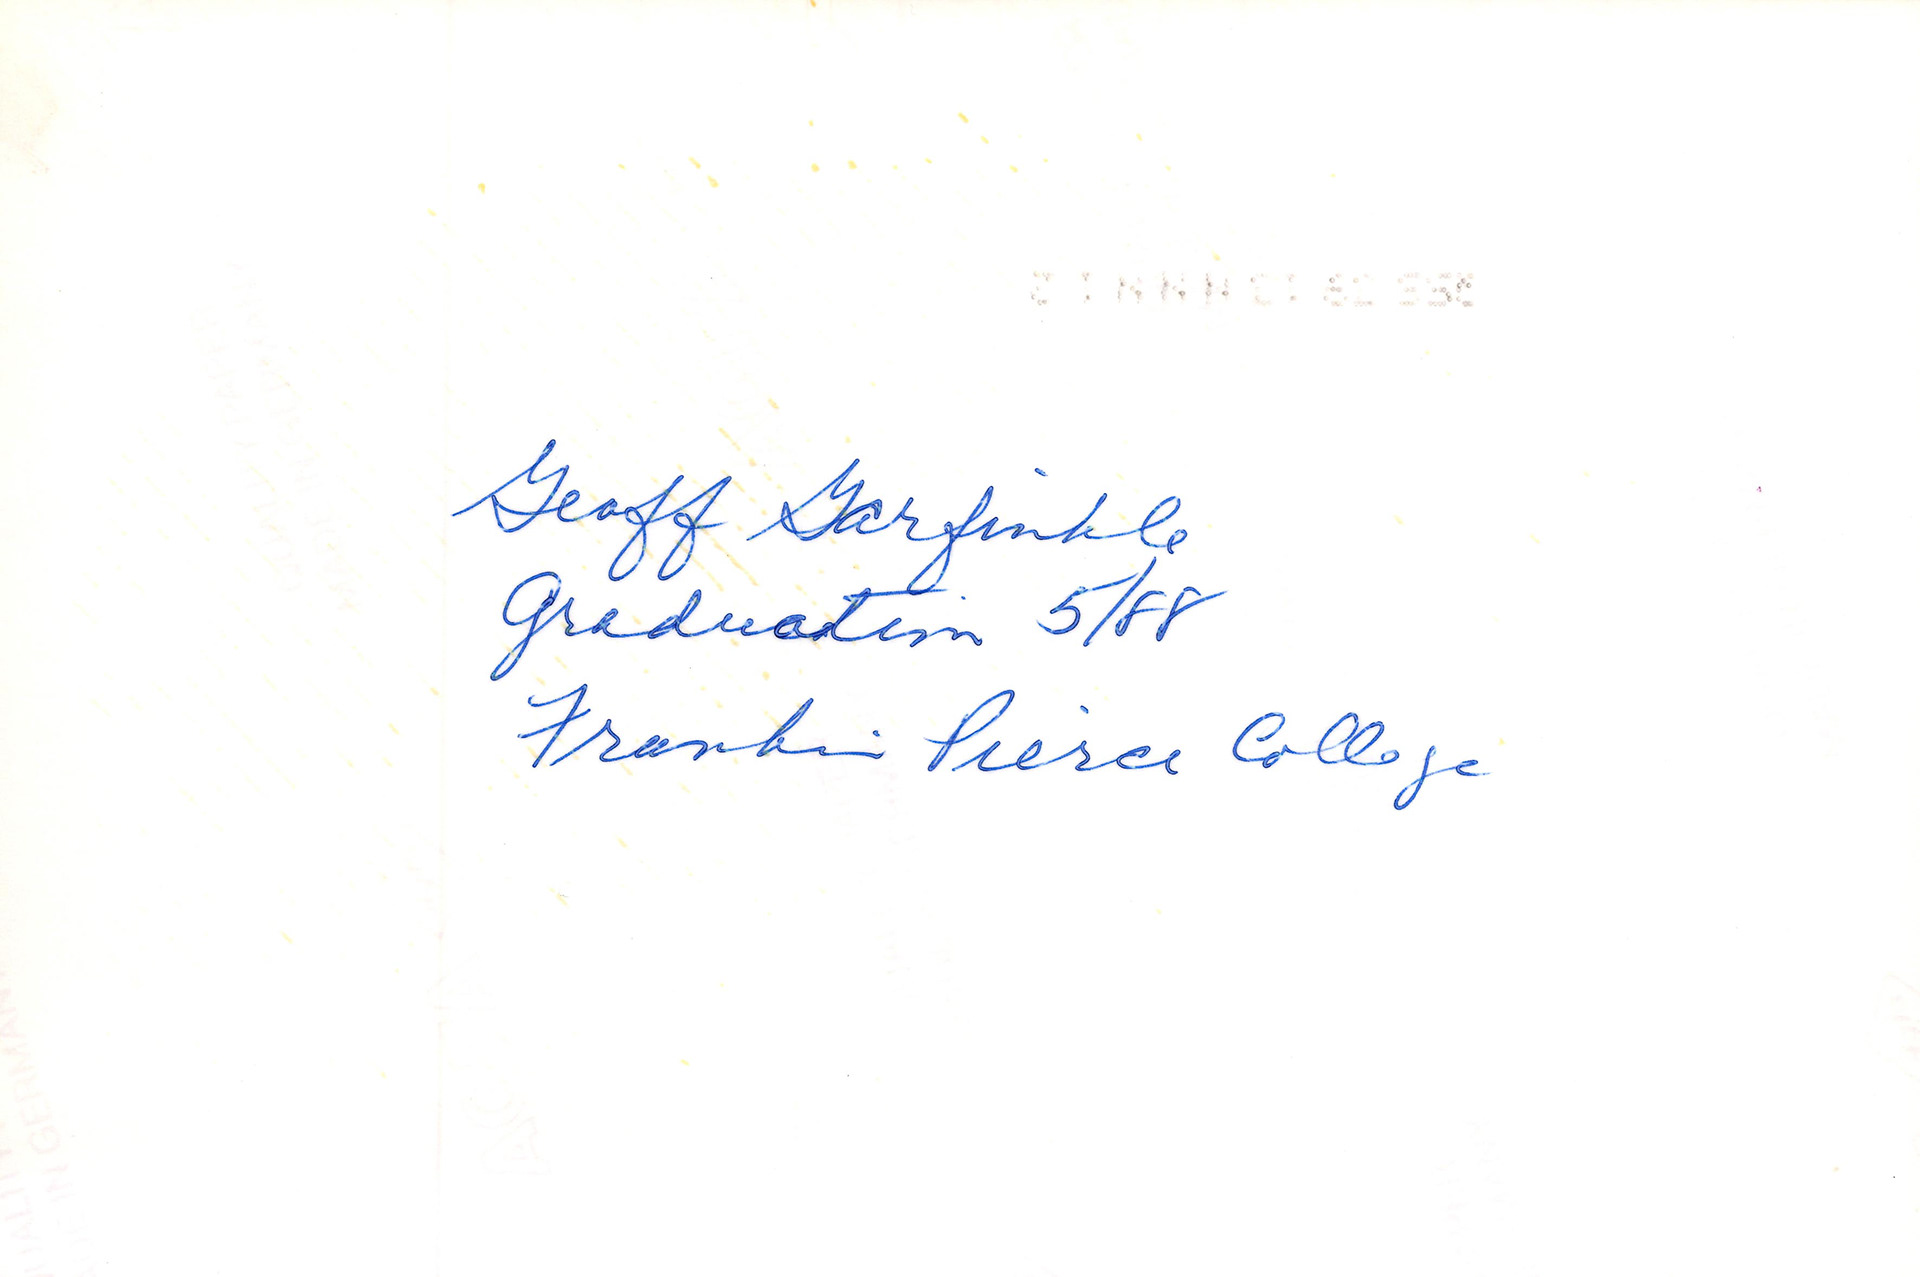 Geoff Garfinkle
Graduation 5/88
Franklin Pierce College